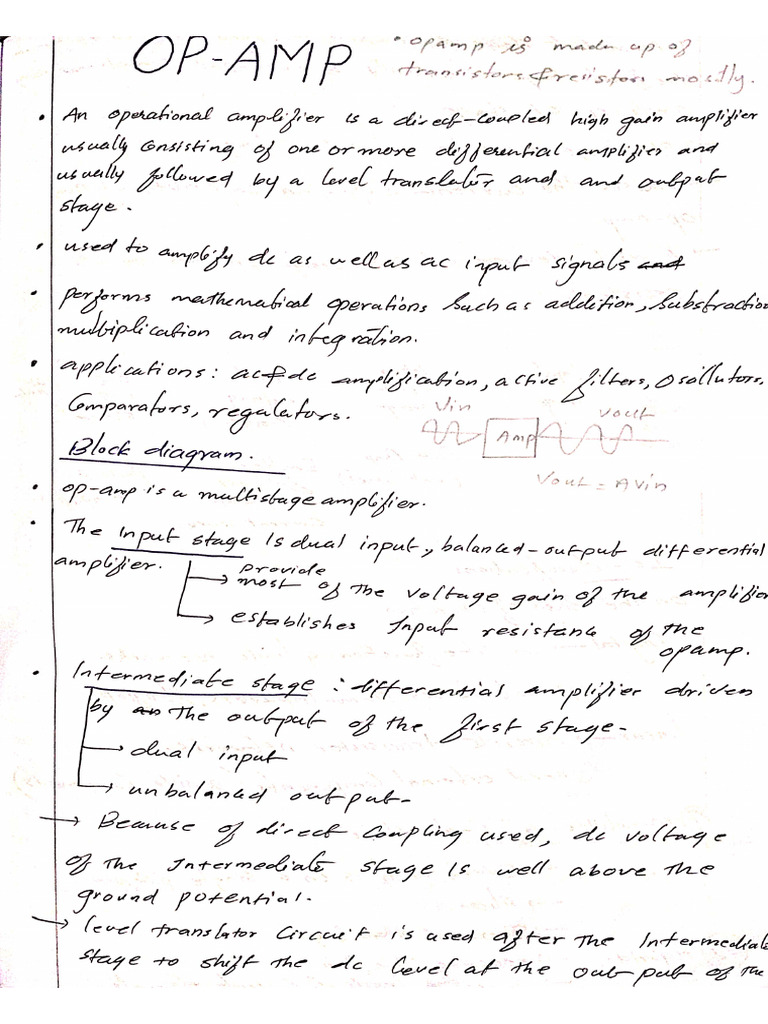 OP-AMP
• opamp is made up of
transistors & resistors mostly.
• An operational amplifier is a direct-coupled high gain amplifier
usually consisting of one or more differential amplifier and
usually followed by a level translator and and output
stage.
• used to amplify dc as well as ac input signals and
• performs mathematical operations such as addition, substraction
multiplication and integration.
• applications: ac & dc amplification, active filters, Osillutors,
Comparators, regulators.
Vin
Vout
Amp
Vout = AVin
Block diagram.
• op-amp is a multistage amplifier.
• The Input stage Is dual input, balanced-output differential
amplifier.
→ provide
most of the voltage gain of the amplifier
→ establishes Input resistance of the
opamp.
• Intermediate stage : differential amplifier driven
by an the output of the first stage.
→ dual input
→ unbalanced output.
→ Because of direct Coupling used, dc voltage
of the Intermediate stage Is well above the
ground potential.
→ level translator Circuit is used after the Intermediate
stage to shift the dc level at the output of the